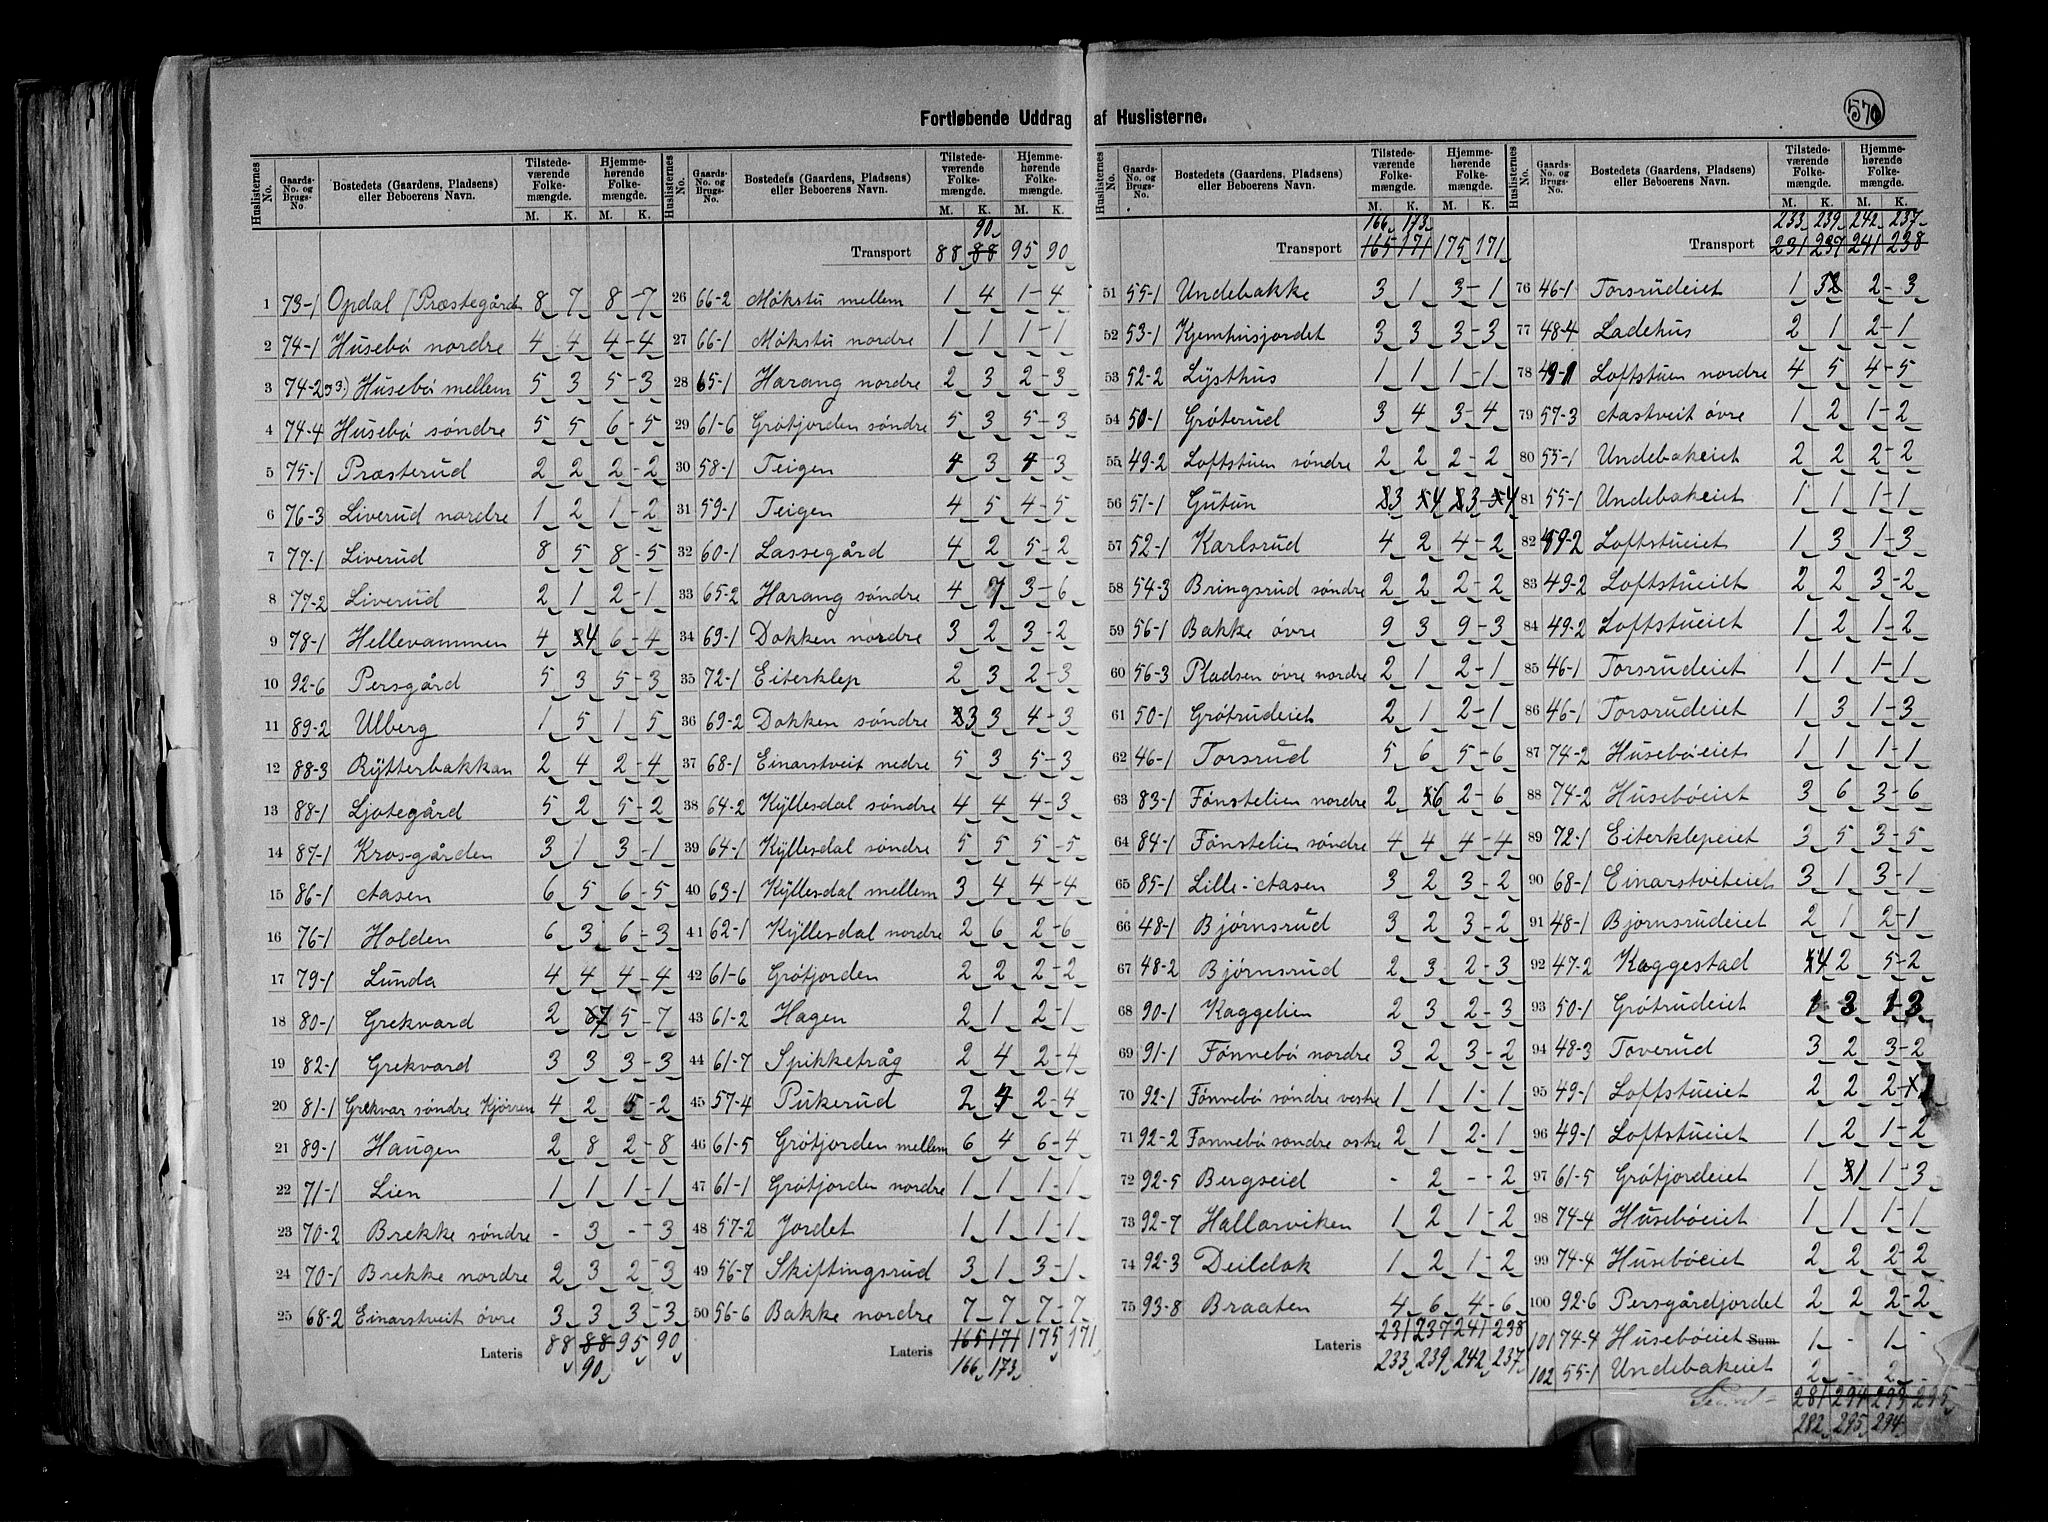 Fortløbende Uddrag af Huslisterne.
570
Huslisternes No. | Gaards-No. og Brugs-No. | Bostedets (Gaardens, Pladsens) eller Beboerens Navn. | Tilstedeværende Folkemængde. M. K. | Hjemmehørende Folkemængde. M. K.
1 73-1 Opdal (Præstegård 8 7 8-7
2 74-1 Husebø nordre 4 4 4-4
3 74-2 Husebø mellem 5 3 5-3
4 74-4 Husebø søndre 5 5 6-5
5 75-1 Præsterud 2 2 2-2
6 76-3 Liverud nordre 1 2 1-2
7 77-1 Liverud 8 5 8-5
8 77-2 Liverud 2 1 2-1
9 78-1 Hellevammen 4 4 6-4
10 92-6 Persgård 5 3 5-3
11 89-2 Ulberg 1 5 1 5
12 88-3 Rytterbakkan 2 4 2-4
13 88-1 Ljotegård 5 2 5-2
14 87-1 Krosgården 3 1 3-1
15 86-1 Aasen 6 5 6-5
16 76-1 Holden 6 3 6-3
17 79-1 Lunda 4 4 4-4
18 80-1 Grekvard 2 7 5-7
19 82-1 Grekvard 3 3 3-3
20 81-1 Grekvar søndre Kjørren 4 2 5-2
21 89-1 Haugen 2 8 2-8
22 71-1 Lien 1 1 1-1
23 70-2 Brekke søndre - 3 - -3
24 70-1 Brekke nordre 2 3 2-3
25 68-2 Einarstveit øvre 3 3 3-3
Lateris 88 88 95 90
90
Huslisternes No. | Gaards-No. og Brugs-No. | Bostedets (Gaardens, Pladsens) eller Beboerens Navn. | Tilstedeværende Folkemængde. M. K. | Hjemmehørende Folkemængde. M. K.
90
Transport 88 88 95 90
26 66-2 Møkstu mellem 1 4 1-4
27 66-1 Møkstu nordre 1 1 1-1
28 65-1 Harang nordre 2 3 2-3
29 61-6 Grøtjorden søndre 5 3 5-3
30 58-1 Teigen 4 3 4-3
31 59-1 Teigen 4 5 4-5
32 60-1 Lassegård 4 2 5-2
33 65-2 Harang søndre 4 7 3-6
34 69-1 Dokken nordre 3 2 3-2
35 72-1 Eiterklep 2 3 2-3
36 69-2 Dokken søndre 3 3 4-3
37 68-1 Einarstveit nedre 5 3 5-3
38 64-2 Kyllesdal søndre 4 4 4-3
39 64-1 Kyllesdal søndre 5 5 5-5
40 63-1 Kyllesdal mellem 3 4 4-4
41 62-1 Kyllesdal nordre 2 6 2-6
42 61-6 Grøtjorden 2 2 2-2
43 61-2 Hagen 2 1 2-1
44 61-7 Spikketråg 2 4 2-4
45 57-4 Pukerud 2 4 2-4
46 61-5 Grøtjorden mellem 6 4 6-4
47 61-1 Grøtjorden nordre 1 1 1-1
48 57-2 Jordet 1 1 1-1
49 56-7 Skiftingsrud 3 1 3-1
50 56-6 Bakke nordre 7 7 7-7
Lateris 165 171 175 171
166 173
Huslisternes No. | Gaards-No. og Brugs-No. | Bostedets (Gaardens, Pladsens) eller Beboerens Navn. | Tilstedeværende Folkemængde. M. K. | Hjemmehørende Folkemængde. M. K.
166 173
Transport 165 171 175 171
51 55-1 Undebakke 3 1 3-1
52 53-1 Kjemhusjordet 3 3 3-3
53 52-2 Lysthus 1 1 1-1
54 50-1 Grøterud 3 4 3-4
55 49-2 Loftstuen søndre 2 2 2-2
56 51-1 Gutun 3 4 3-4
57 52-1 Karlsrud 4 2 4-2
58 54-3 Bringsrud søndre 2 2 2-2
59 56-1 Bakke øvre 9 3 9-3
60 56-3 Pladsen øvre nordre 2 1 2-1
61 50-1 Grøtrudeiet 2 1 2-1
62 46-1 Torsrud 5 6 5-6
63 83-1 Fønstelien nordre 2 6 2-6
64 84-1 Fønstelien søndre 4 4 4-4
65 85-1 Lille-Aasen 3 2 3-2
66 48-1 Bjørnsrud 3 2 3-2
67 48-2 Bjørnsrud 2 3 2-3
68 90-1 Kaggelien 2 3 2-3
69 91-1 Fønnebø nordre 3 2 3-2
70 92-1 Fønnebø søndre vestre 1 1 1-1
71 92-2 Fønnebø søndre østre 2 1 2-1
72 92-5 Bergseid - 2 - -2
73 92-7 Hallarviken 1 2 1-2
74 92-3 Deildok 1 2 1-2
75 93-8 Braaten 4 6 4-6
Lateris 231 237 241 238
233 239 242 237
Huslisternes No. | Gaards-No. og Brugs-No. | Bostedets (Gaardens, Pladsens) eller Beboerens Navn. | Tilstedeværende Folkemængde. M. K. | Hjemmehørende Folkemængde. M. K.
233 239 242 237
Transport 231 237 241 238
76 46-1 Torsrudeiet 1 3 2-3
77 48-4 Ladehus 2 1 2-1
78 49-1 Loftstuen nordre 4 5 4-5
79 57-3 Aastveit øvre 1 2 1-2
80 55-1 Undebakeiet 2 2 2-2
81 55-1 Undebakeiet 1 1 1-1
82 49-2 Loftstueiet 1 3 1-3
83 49-2 Loftstueiet 2 2 3-2
84 49-2 Loftstueiet 1 2 1-2
85 46-1 Torsrudeiet 1 1 1-1
86 46-1 Torsrudeiet 1 3 1-3
87 74-2 Husebøeiet 1 1 1-1
88 74-2 Husebøeiet 3 6 3-6
89 72-1 Eiterklepeiet 3 5 3-5
90 68-1 Einarstveteiet 3 1 3-1
91 48-1 Bjørnsrudeiet 2 1 2-1
92 47-2 Kaggestad 4 2 5-2
93 50-1 Grøtrudeiet 1 3 1-3
94 48-3 Toverud 3 2 3-2
95 49-1 Loftstueiet 2 2 2-
96 49-1 Loftstueiet 1 2 1-2
97 61-5 Grøtjordeiet 1 1 1-3
98 74-4 Husebøeiet 1 1 1-1
99 74-4 Husebøeiet 2 2 2-2
100 92-6 Persgårdjordet 2 2 2-2
101 74-4 Husebøeiet Sum 1 - 1 -
102 55-1 Undebakeiet 2 - 2 -
Sum 281 294 293 295
282 295 294